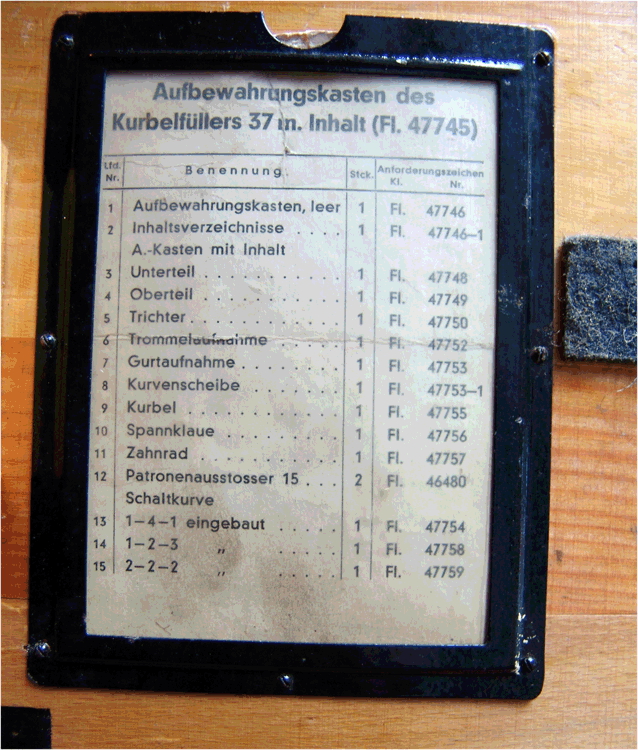 Aufbewahrungskasten des
Kurbelfüllers 37 m. Inhalt (Fl. 47745)
Lfd. Nr. Benennung Stck. Anforderungszeichen Kl. Nr.
1 Aufbewahrungskasten, leer 1 Fl. 47746
2 Inhaltsverzeichnisse . . . . 1 Fl. 47746–1
A.-Kasten mit Inhalt
3 Unterteil . . . . . . . . . . . 1 Fl. 47748
4 Oberteil . . . . . . . . . . . 1 Fl. 47749
5 Trichter . . . . . . . . . . . . 1 Fl. 47750
6 Trommelaufnahme . . . . . 1 Fl. 47752
7 Gurtaufnahme . . . . . . . . 1 Fl. 47753
8 Kurvenscheibe . . . . . . . 1 Fl. 47753–1
9 Kurbel . . . . . . . . . . . . 1 Fl. 47755
10 Spannklaue . . . . . . . . . 1 Fl. 47756
11 Zahnrad . . . . . . . . . . . 1 Fl. 47757
12 Patronenausstosser 15 . . . 2 Fl. 46480
Schaltkurve
13 1–4–1 eingebaut . . . . . . 1 Fl. 47754
14 1–2–3 „ . . . . . 1 Fl. 47758
15 2–2–2 „ . . . . . 1 Fl. 47759